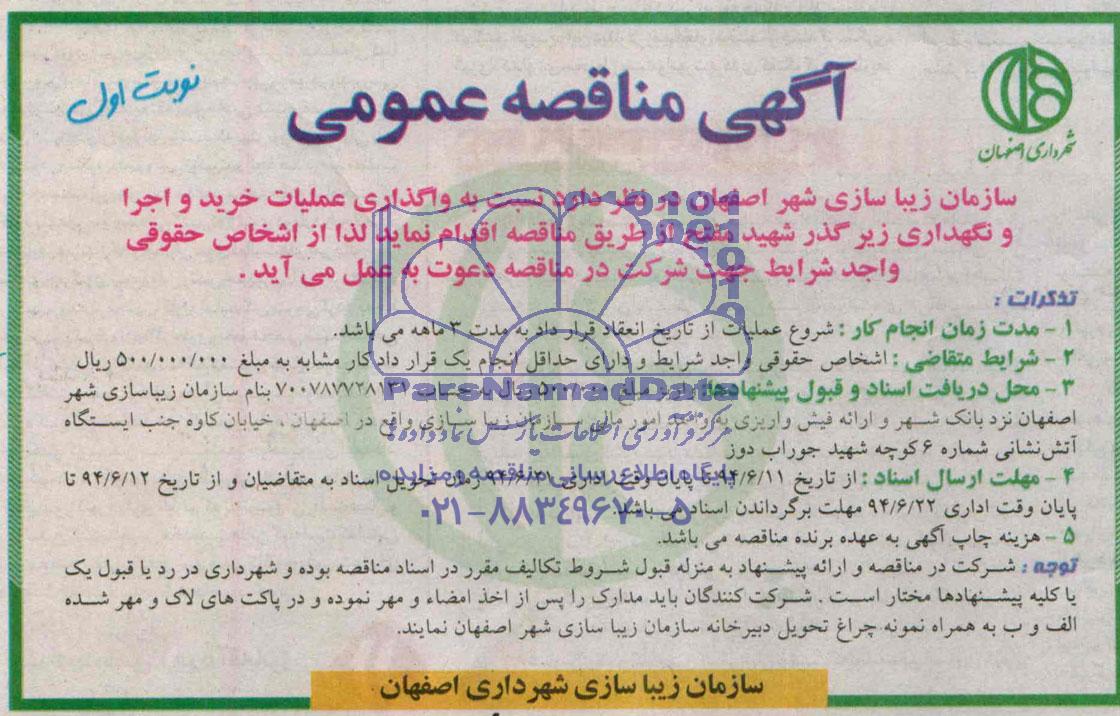 آگهی مناقصه عمومی
نوبت اول
شهرداری اصفهان
سازمان زیبا سازی شهر اصفهان در نظر دارد نسبت به واگذاری عملیات خرید و اجرا
و نگهداری زیر گذر شهید مفتح از طریق مناقصه اقدام نماید لذا از اشخاص حقوقی
واجد شرایط جهت شرکت در مناقصه دعوت به عمل می آید .
تذکرات :
۱ - مدت زمان انجام کار : شروع عملیات از تاریخ انعقاد قرار داد به مدت ۳ ماهه می باشد.
۲ - شرایط متقاضی : اشخاص حقوقی واجد شرایط و دارای حداقل انجام یک قرار داد کار مشابه به مبلغ ۵۰۰/۰۰۰/۰۰۰ ریال
۳ - محل دریافت اسناد و قبول پیشنهادها: واریز مبلغ ریال به حساب بنام سازمان زیباسازی شهر
اصفهان نزد بانک شهر و ارائه فیش واریزی به واحد امور مالی سازمان زیبا سازی واقع در اصفهان ، خیابان کاوه جنب ایستگاه
آتش‌نشانی شماره ۶ کوچه شهید جوراب دوز
۴ - مهلت ارسال اسناد : از تاریخ ۹۴/۶/۱۱ تا پایان وقت اداری ۹۴/۶/۲۱ زمان تحویل اسناد به متقاضیان و از تاریخ ۹۴/۶/۱۲ تا
پایان وقت اداری ۹۴/۶/۲۲ مهلت برگرداندن اسناد می باشد.
۵ - هزینه چاپ آگهی به عهده برنده مناقصه می باشد.
توجه : شرکت در مناقصه و ارائه پیشنهاد به منزله قبول شروط تکالیف مقرر در اسناد مناقصه بوده و شهرداری در رد یا قبول یک
یا کلیه پیشنهادها مختار است . شرکت کنندگان باید مدارک را پس از اخذ امضاء و مهر نموده و در پاکت های لاک و مهر شده
الف و ب به همراه نمونه چراغ تحویل دبیرخانه سازمان زیبا سازی شهر اصفهان نمایند.
سازمان زیبا سازی شهرداری اصفهان
ParsNamadData
مرکز فرآوری اطلاعات پارس نماد داده ها
پایگاه اطلاع رسانی مناقصه و مزایده
۰۲۱-۸۸۳۴۹۶۷۰-۵